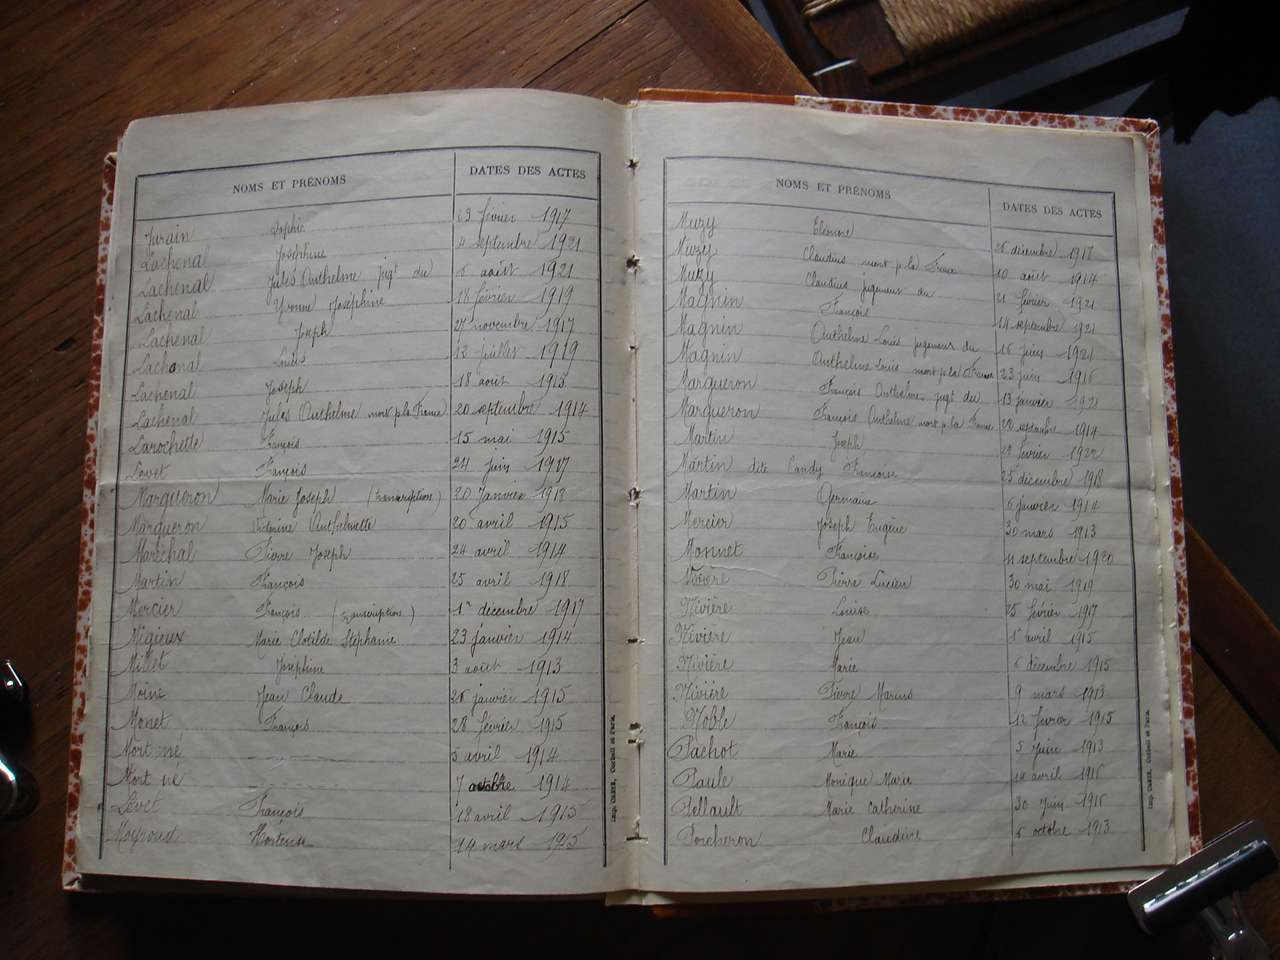 NOMS ET PRÉNOMS DATES DES ACTES
Jurain Sophie 13 février 1917
Lachenal Joséphine 4 septembre 1921
Lachenal Jules Anthelme jugt du 6 août 1921
Lachenal Yvonne Joséphine 18 février 1919
Lachenal Joseph 27 novembre 1917
Lachenal Louis 12 juillet 1919
Lachenal Joseph 18 août 1915
Lachenal Jules Anthelme mort p. la France 20 septembre 1914
Larochette François 15 mai 1915
Levet François 24 juin 1917
Margueron Marie Joseph (transcription) 20 Janvier 1913
Margueron Victorine Anthelmette 20 avril 1915
Maréchal Pierre Joseph 24 avril 1914
Martin François 25 avril 1918
Mercier François (transcription) 1r décembre 1917
Migieux Marie Clotilde Stéphanie 23 janvier 1914
Millet Joséphine 3 août 1913
Moine Jean Claude 26 janvier 1915
Monet François 28 février 1915
Mort né 5 avril 1914
Mort né 7 octobre 1914
Levet François 18 avril 1915
Hortense 14 mars 1915
Imp. Corbeil et Paris.
NOMS ET PRÉNOMS DATES DES ACTES
Muzy Eléonore 26 décembre 1918
Muzy Claudius mort p. la France 10 août 1914
Muzy Claudius jugement du 21 février 1921
Magnin François 14 septembre 1921
Magnin Anthelme Louis jugement du 16 juin 1921
Magnin Anthelme Louis mort p. la France 23 juin 1916
Margueron François Anthelme jugt du 13 janvier 1921
Margueron François Anthelme mort p. la France 22 septembre 1914
Martin Joseph 22 février 1922
Martin dite Candy Françoise 25 décembre 1918
Martin Germaine 6 janvier 1914
Mercier Joseph Eugène 30 mars 1913
Monnet Françoise 11 septembre 1920
Nivière Pierre Lucien 30 mai 1919
Nivière Louise 25 février 1917
Nivière Jean 1r avril 1915
Nivière Marie 6 décembre 1915
Nivière Pierre Marius 9 mars 1913
Noble François 12 février 1915
Pachot Marie 5 Juin 1913
Paule Monique Marie avril 1916
Pellault Marie Catherine 30 Juin 1916
Porcheron Claudine 6 octobre 1913
Imp. Corbeil et Paris.